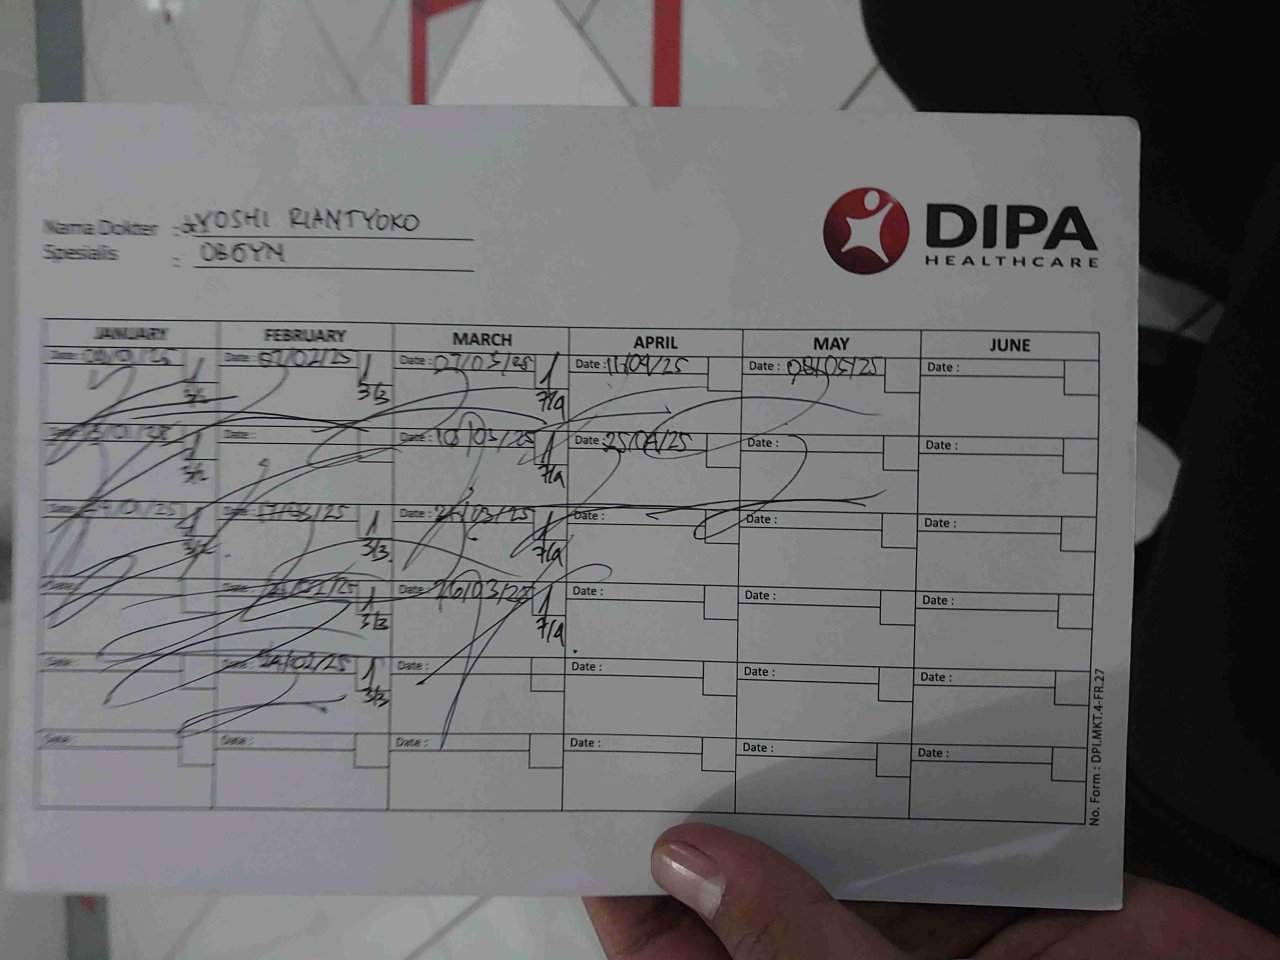 Nama Dokter : dr YOSHI RIANTYOKO
Spesialis : OBGYN
DIPA
HEALTHCARE
JANUARY FEBRUARY MARCH APRIL MAY JUNE
Date : Date : 07/02/25 1 Date : 07/03/25 1 Date : 11/04/25 Date : 08/05/25 Date :
3/3 7/4
Date : Date : Date : 10/03/25 1 Date : 25/04/25 Date : Date :
7/4
Date : Date : 17/02/25 1 Date : 03/25 1 Date : Date : Date :
3/3 7/4
Date : Date : /02/25 1 Date : 26/03/25 1 Date : Date : Date :
3/3 7/4
Date : Date : 24/02/25 1 Date : Date : Date : Date :
3/3
Date : Date : Date : Date : Date : Date :
No. Form : DPI.MKT.4-FR.27